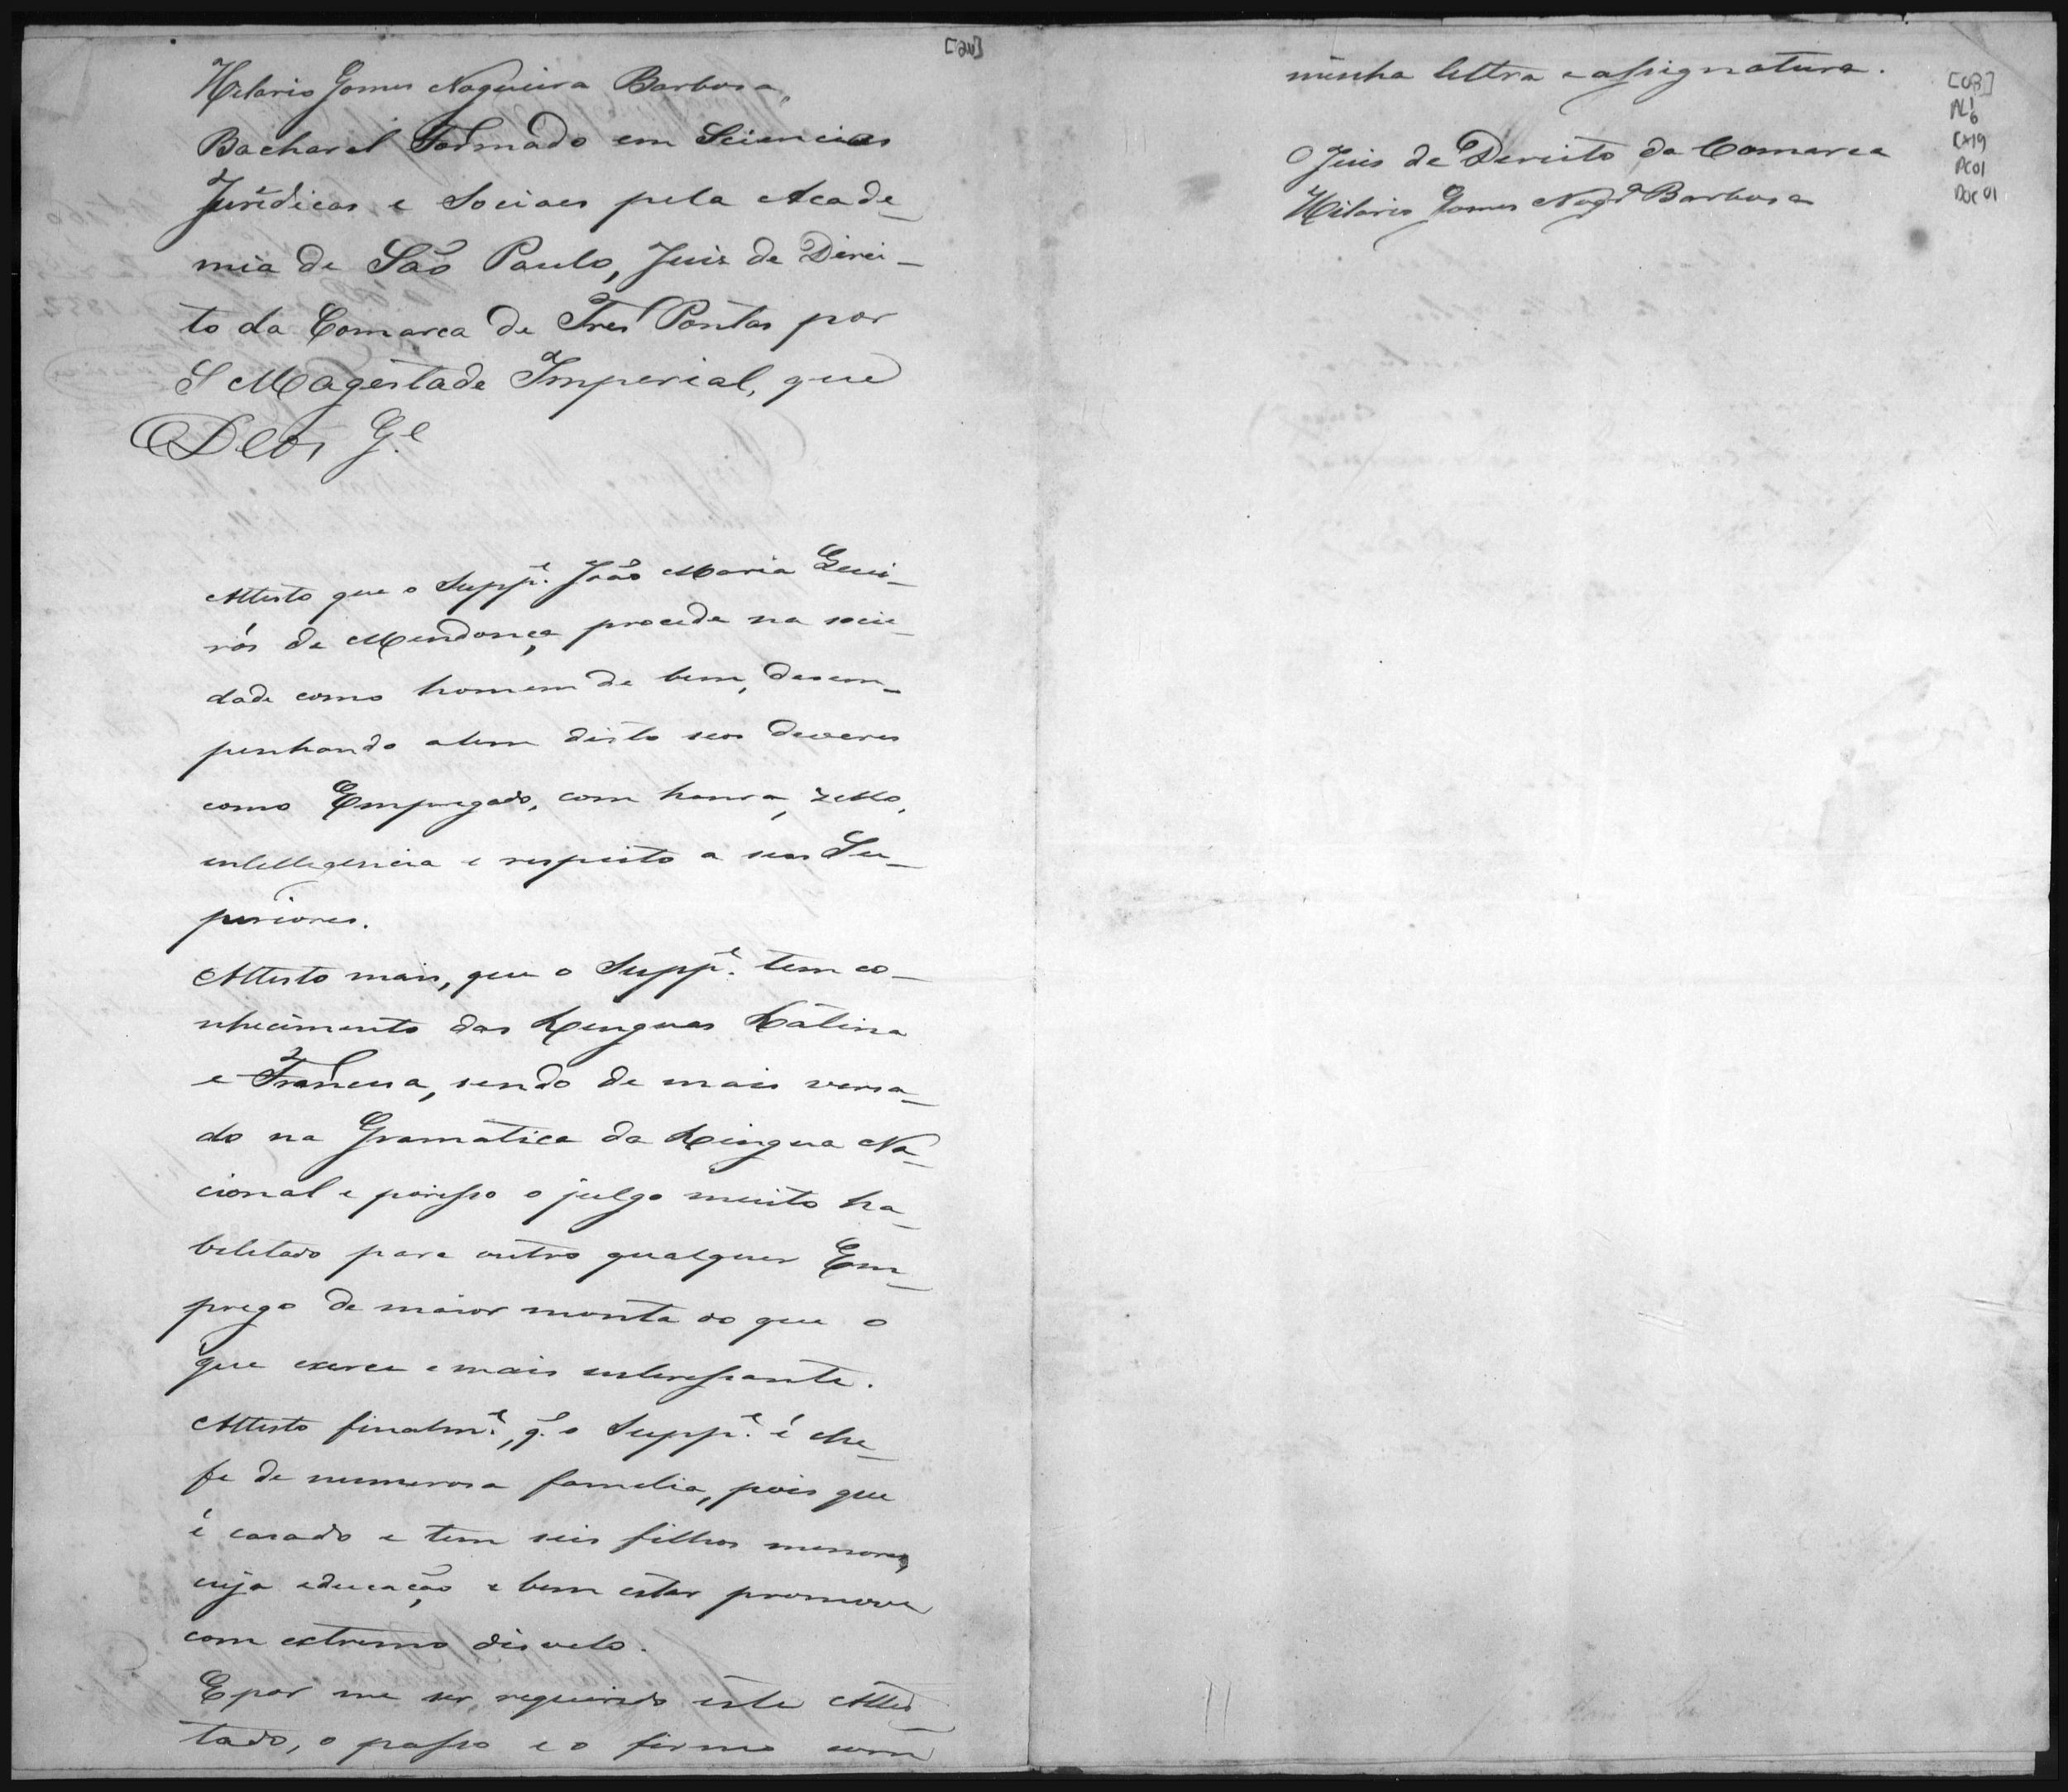 [2v]
Hilario Gomes Nogueira Barbosa,
Bacharel Formado em Sciencias
Juridicas e Sociaes pela Acade_
mia de São Paulo, Juis de Direi_
to da Comarca de Tres Pontas por
S Magestade Imperial, que
Deos G.e
Attesto que o Supp.e João Maria Quei_
rós de Mendonça, procede na socie_
dade como homem de bem, desem_
penhando alem disto seos deveres
como Empregado, com honra, zello,
intelligencia e respeito a seus Su_
periores.
Attesto mais, que o Supp.e tem co_
nhecimento das Linguas Latina
e Francesa, sendo de mais versa_
do na Gramatica da Lingua Na_
cional e porisso o julgo muito ha_
bilitado para outro qualquer Em_
prego de maior monta do que o
que exerce e mais interessante.
Attesto finalm.e, q. o Supp.e é che_
fe de numerosa familia, pois que
é casado e tem seis filhos menores,
cuja educação e bem estar promove
com extremo disvelo.
E por me ser requerido este Attes_
tado, o passo e o firmo com
minha lettra e assignatura.
O Juis de Direito da Comarca
Hilario Gomes Nogr.a Barbosa
[03]
PL1
6
CX19
PC01
Doc 01